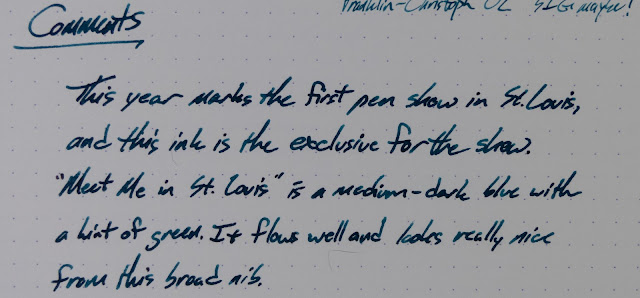 Franklin-Christoph 02
Comments
This year marks the first pen show in St. Louis,
and this ink is the exclusive for the show.
"Meet Me in St. Louis" is a medium-dark blue with
a hint of green. It flows well and looks really nice
from this broad nib.